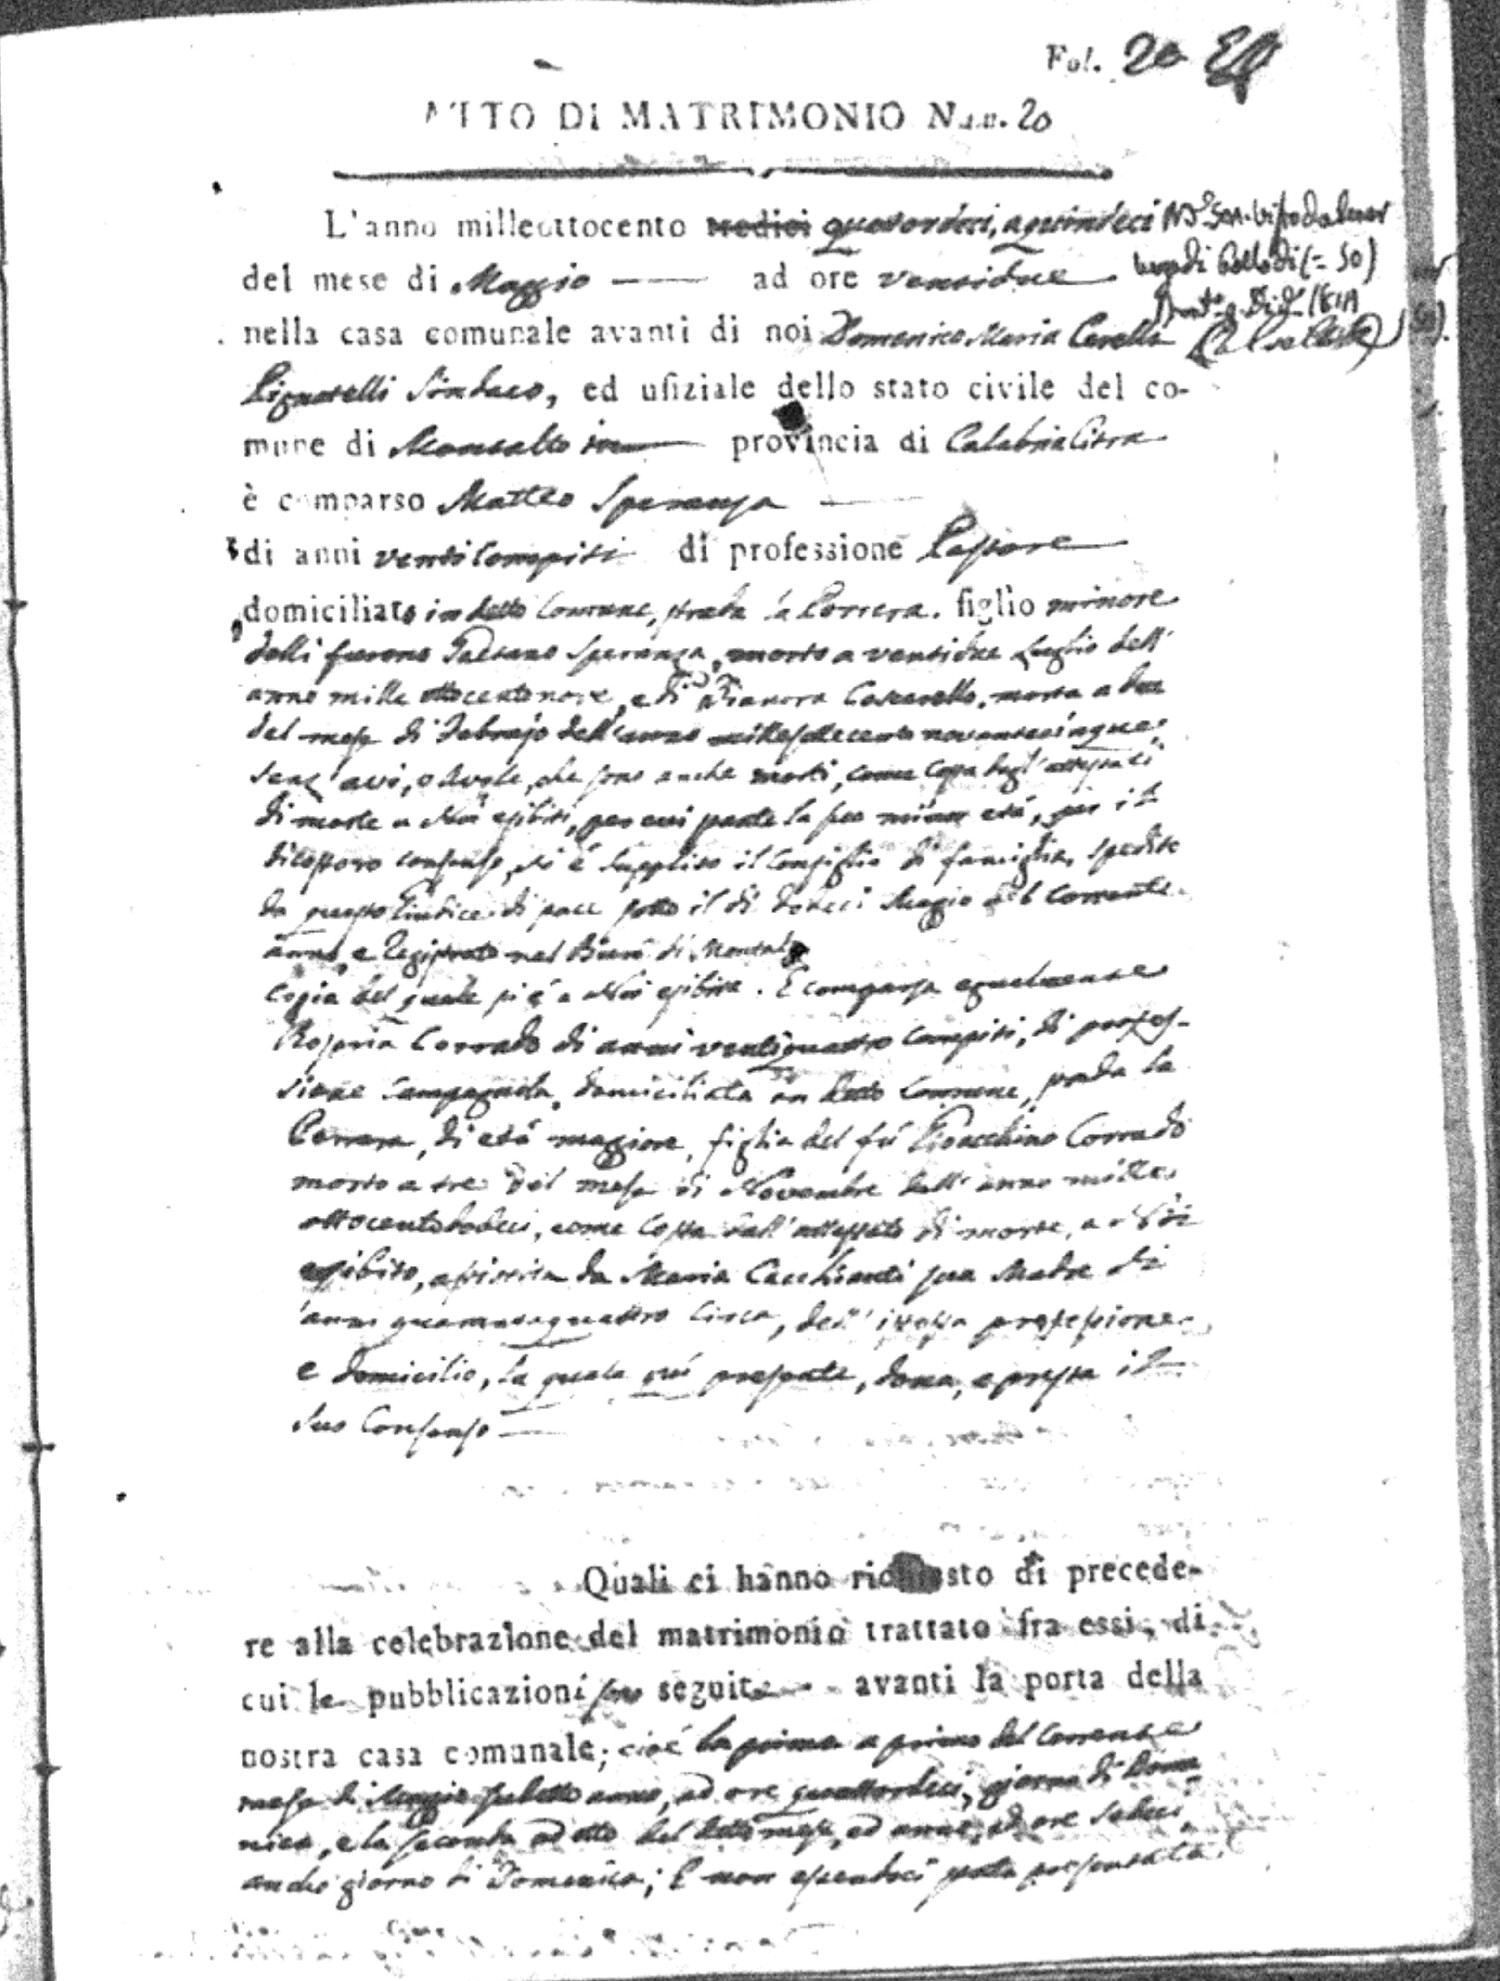 Fol. 20 20
ATTO DI MATRIMONIO Num. 20
L'anno milleottocento tredici quatordeci, a quindeci
del mese di Maggio ad ore ventidue
nella casa comunale avanti di noi Domenico Maria
Pignatelli Sindaco, ed ufiziale dello stato civile del co-
mune di Montalto provincia di Calabria Citra
è comparso Matteo Speranza
di anni venti compiti di professione Pastore
domiciliato in detto Comune, strada la Porrera. figlio minore
delli furono Gaetano Speranza, morto a ventidue Luglio dell'
anno mille ottocentonove, e di Dianora Coscarello, morta a due
del mese di Febrajo dell'anno millesettecento novantacinque,
senz'avi, o Avole, che sono anche morti, come costa dagl'attestati
di morte a Noi esibiti, per cui parte la sua minor età, per il
di costoro consenso, si è supplito il Consiglio di famiglia, spedito
da questo Giudice di pace sotto il dì dodeci Maggio del corrente
anno, e Registrato nel Burò di Montalto
Copia del quale si è a Noi esibita. E comparsa egualmente
Rosaria Corrado di anni ventiquattro compiti, di profes-
sione Campagnola, domiciliata in detto Comune, strada la
Porrera, di età maggiore, figlia del fù Gioacchino Corrado
morto a tre del mese di Novembre dell'anno mille
ottocentododeci, come costa dall'attestato di morte, a Noi
esibito, assistita da Maria Cacchianti sua Madre di
anni quarantaquattro circa, dell'istessa professione
e domicilio, la quale quì presente, dona, e presta il
suo Consenso
Quali ci hanno richiesto di precede-
re alla celebrazione del matrimonio trattato fra essi, di
cui le pubblicazioni sono seguite avanti la porta della
nostra casa comunale; cioè la prima a primo del corrente
mese di Maggio sudetto anno, ad ore quattordeci, giorno di Dome-
nica, e la seconda ad otto del detto mese, ed anno, ad ore sedeci,
anche giorno di Domenica; E non essendoci stata presentata